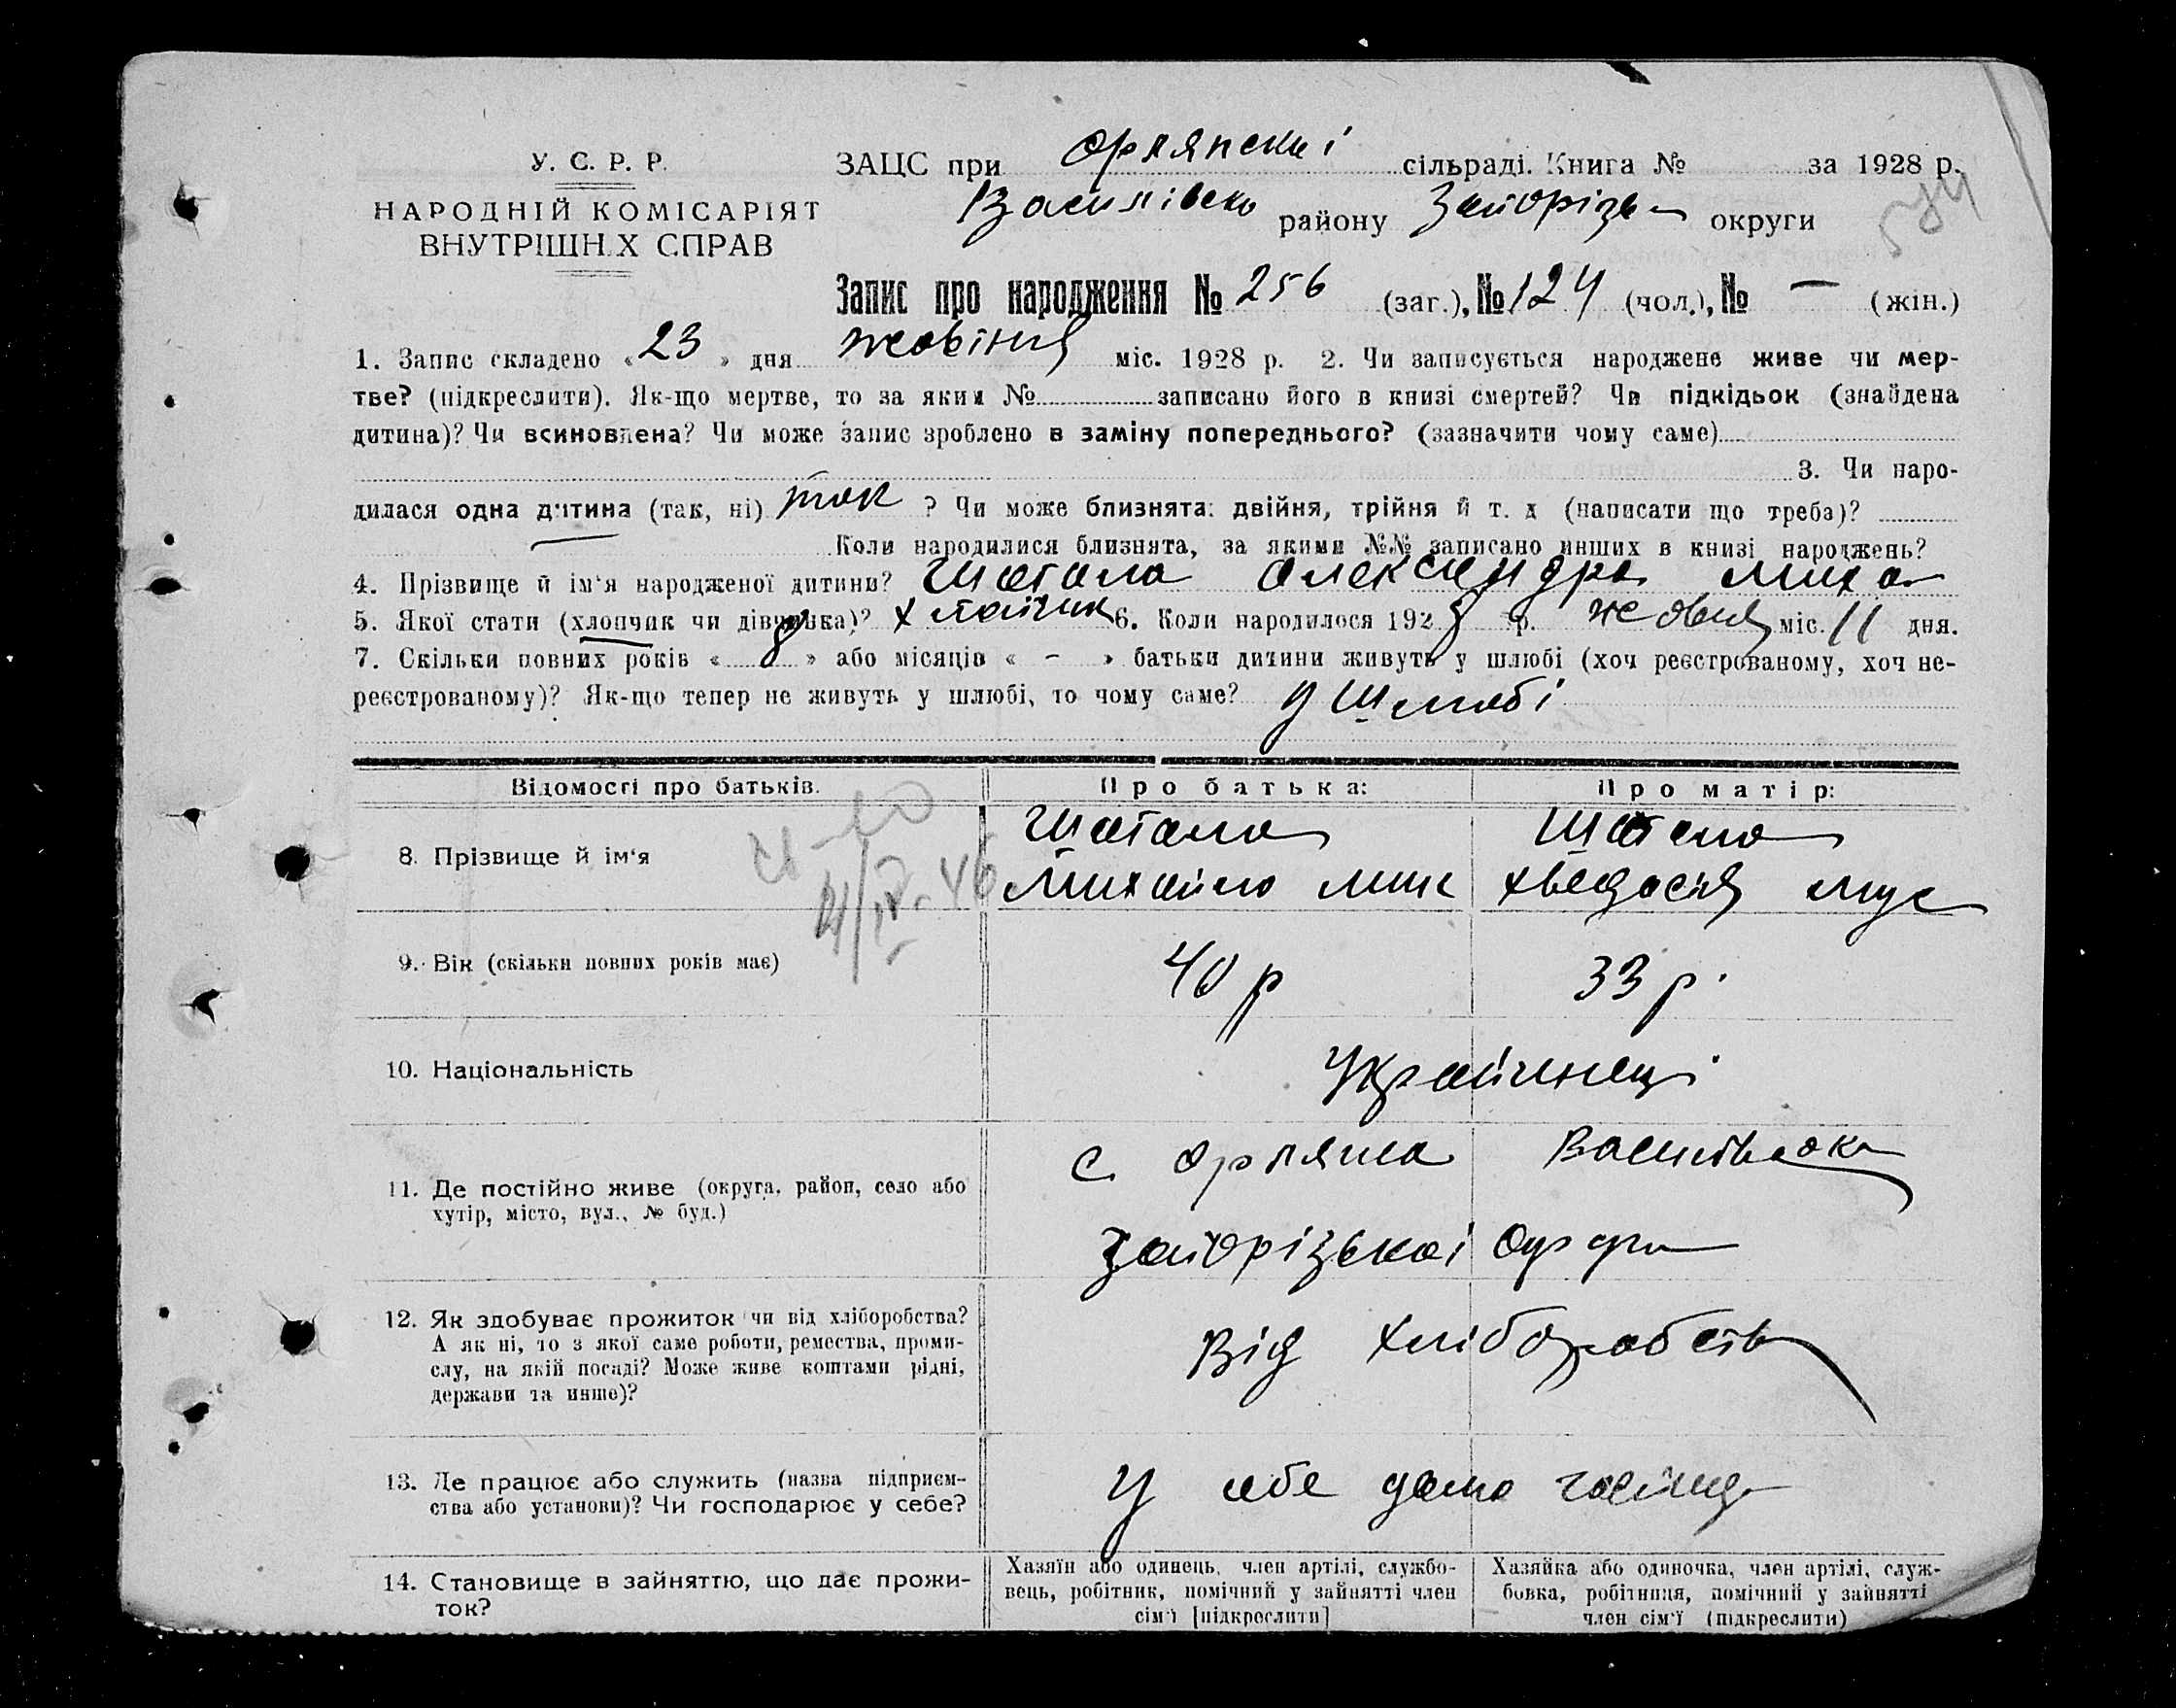 У. С. Р. Р.
НАРОДНІЙ КОМІСАРІЯТ
ВНУТРІШН.Х СПРАВ
ЗАЦС при Орлянскі сільраді. Книга № за 1928 р.
Василівско району Запорізь округи
Запис про народження № 256 (заг.), № 124 (чол.), № — (жін.)
1. Запис складено «23» дня жовтня міс. 1928 р. 2. Чи записується народжене живе чи мер-
тве? (підкреслити). Як-що мертве, то за яким № записано його в книзі смертей? Чи підкідьок (знайдена
дитина)? Чи всиновлена? Чи може запис зроблено в заміну попереднього? (зазначити чому саме)
3. Чи наро-
дилася одна дитина (так, ні) так ? Чи може близнята: двійня, трійня й т. д (написати що треба)?
— Коли народилися близнята, за якими №№ записано инших в книзі народжень?
4. Прізвище й ім'я народженої дитини? Шатало Александра Миха
5. Якої стати (хлопчик чи дівчинка)? хлопчик 6. Коли народилося 1928 р. жовтня міс. 11 дня.
7. Скільки повних років «8» або місяців « - » батьки дитини живуть у шлюбі (хоч реєстрованому, хоч не-
реєстрованому)? Як-що тепер не живуть у шлюбі, то чому саме? У Шлюбі
Відомості про батьків. Про батька: Про матір:
8. Прізвище й ім'я
Шатало Шатало
Михайло Мик Хведосія
9. Вік (скільки повних років має) 40 р 33 р.
10. Національність Українеці
11. Де постійно живе (округа, район, село або
хутір, місто, вул., № буд.)
с Орлянка
Запорізької округи
12. Як здобуває прожиток чи від хліборобства?
А як ні, то з якої саме роботи, ремества, проми-
слу, на якій посаді? Може живе коштами рідні,
держави та инше)?
Від Хліборобств
13. Де працює або служить (назва підприєм-
ства або установи)? Чи господарює у себе?
У себе дома
14. Становище в зайняттю, що дає прожи-
ток?
Хазяїн або одинець, член артілі, службо-
вець, робітник, помічний у зайнятті член
сім'ї [підкреслити]
Хазяйка або одиночка, член артілі, служ-
бовка, робітниця, помічний у зайнятті
член сім'ї (підкреслити)